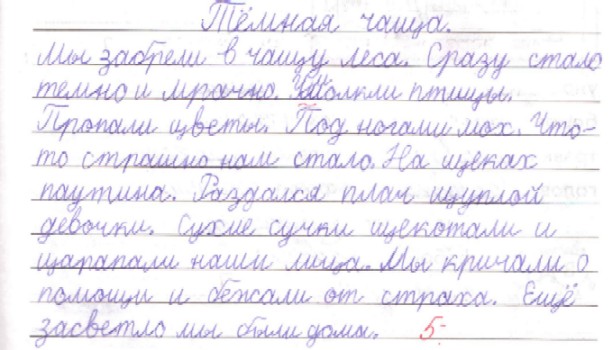 Тёмная чаща.
Мы забрели в чащу леса. Сразу стало
темно и мрачно. Умолкли птицы.
Пропали цветы. Под ногами мох. Что-
то страшно нам стало. На щеках
паутина. Раздался плач щуплой
девочки. Сухие сучки щекотали и
царапали наши лица. Мы кричали о
помощи и бежали от страха. Ещё
засветло мы были дома. 5-